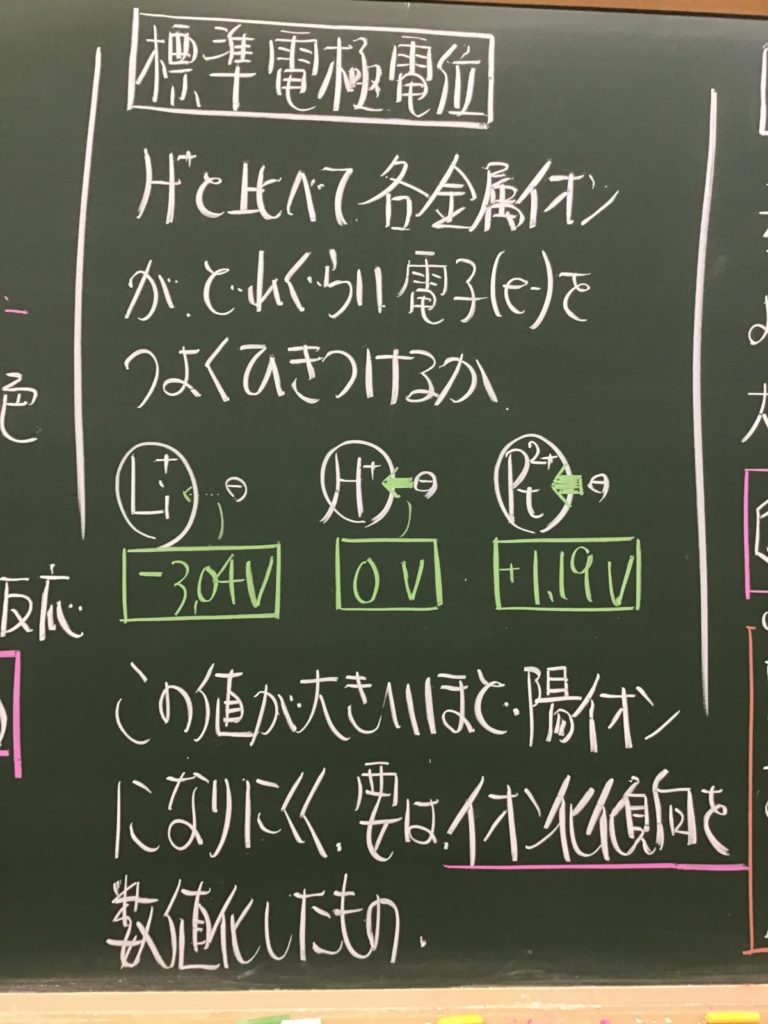 標準電極電位
H⁺と比べて各金属イオン
が、どれぐらい電子(e-)を
つよくひきつけるか、
Li⁺ ⊖ H⁺ ⊖ Pt²⁺ ⊖
-3.04V 0 V +1.19V
この値が大きいほど、陽イオン
になりにくく、要は、イオン化傾向を
数値化したもの、
色
反応